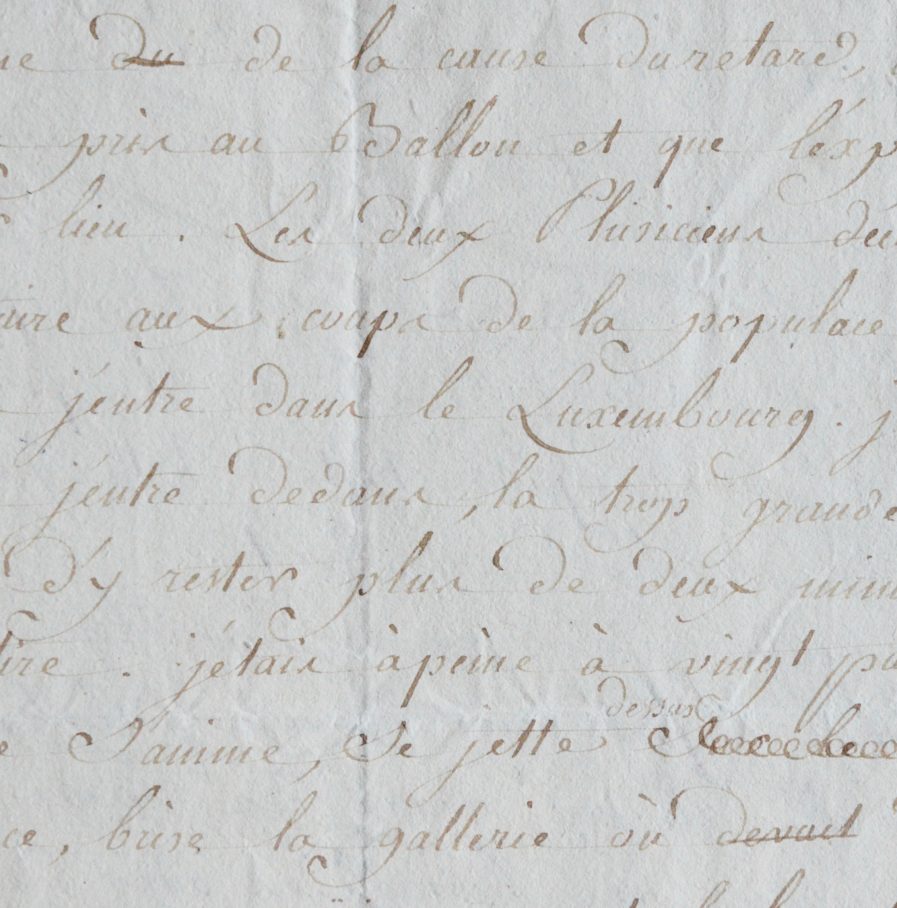 ne du de la cause du retard,
pris au Ballon et que l'éxp
lieu. Les deux Phisiciens
aire aux coups de la populace
j'entre dans le Luxembourg. j
j'entre dedans, la trop grande
d'y rester plus de deux minu
tire. j'étais à peine à vingt pa
dessus
e s'anime, se jette
ce, brise la gallerie où devait